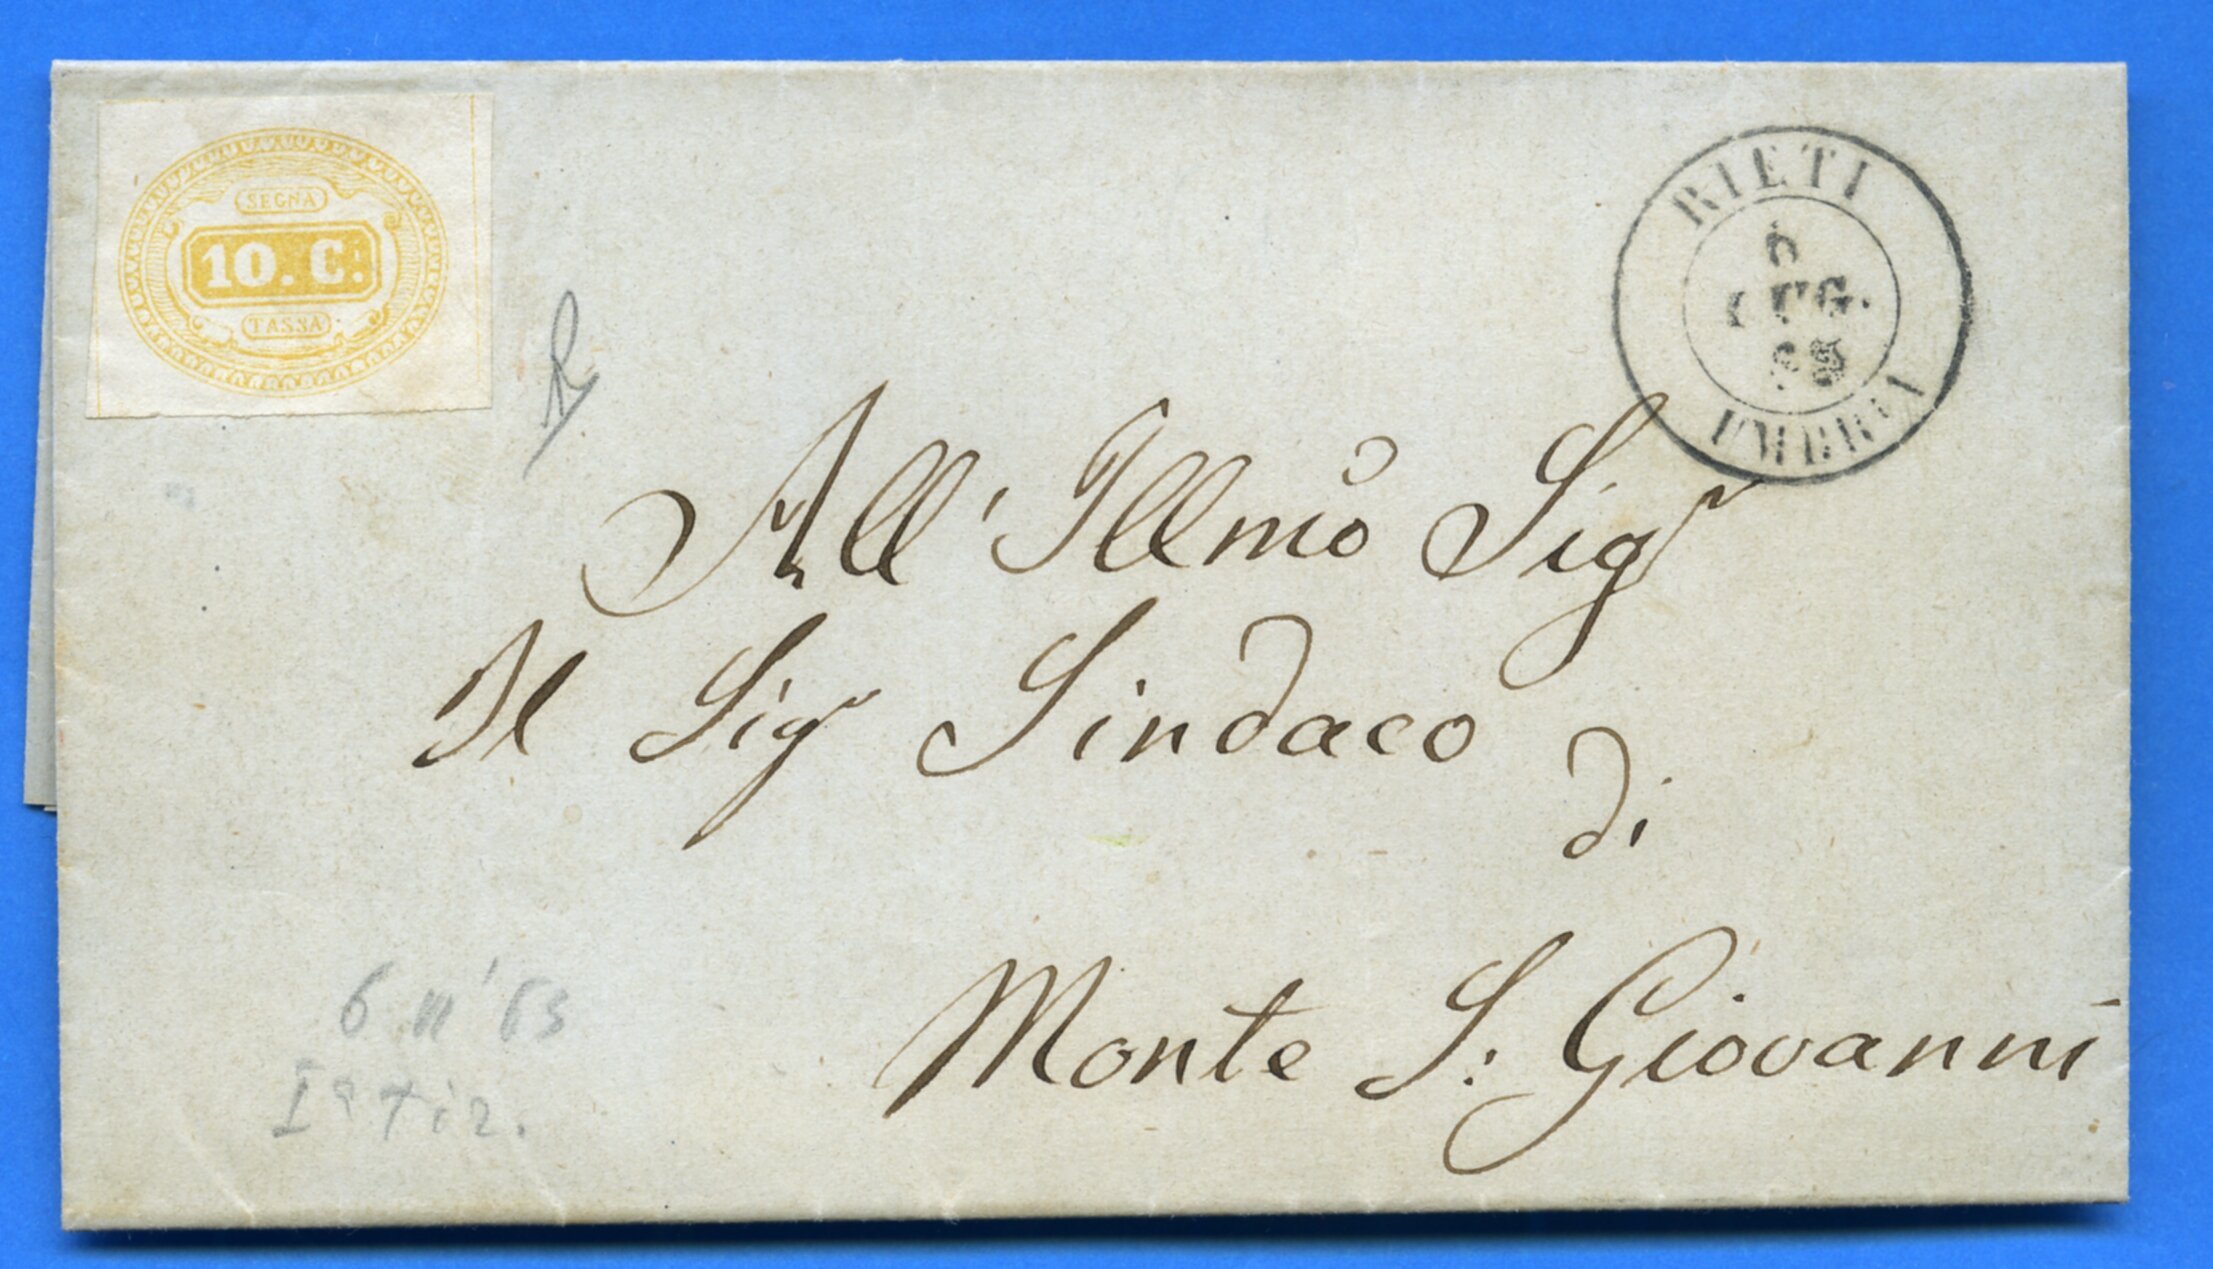 SEGNA
10. C:
TASSA
RIETI
LUG.
63
UMBRIA
All' Illmo Sigr
Il Sigr Sindaco
di
Monte S. Giovanni